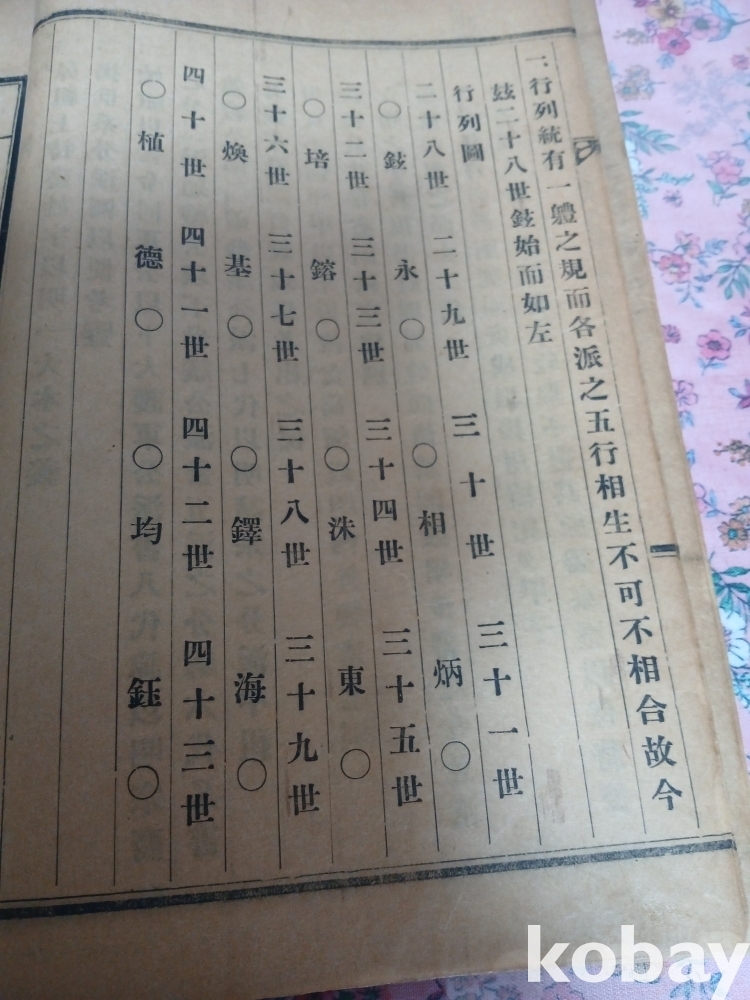 一行列統有一軆之規而各派之五行相生不可不相合故今
玆二十八世鉉始而如左
行列圖
二十八世 二十九世 三十世 三十一世
○鉉 永○ ○相 炳○
三十二世 三十三世 三十四世 三十五世
○培 鎔○ ○洙 東○
三十六世 三十七世 三十八世 三十九世
○煥 基○ ○鐸 海○
四十世 四十一世 四十二世 四十三世
○植 德○ ○均 鈺○
kobay